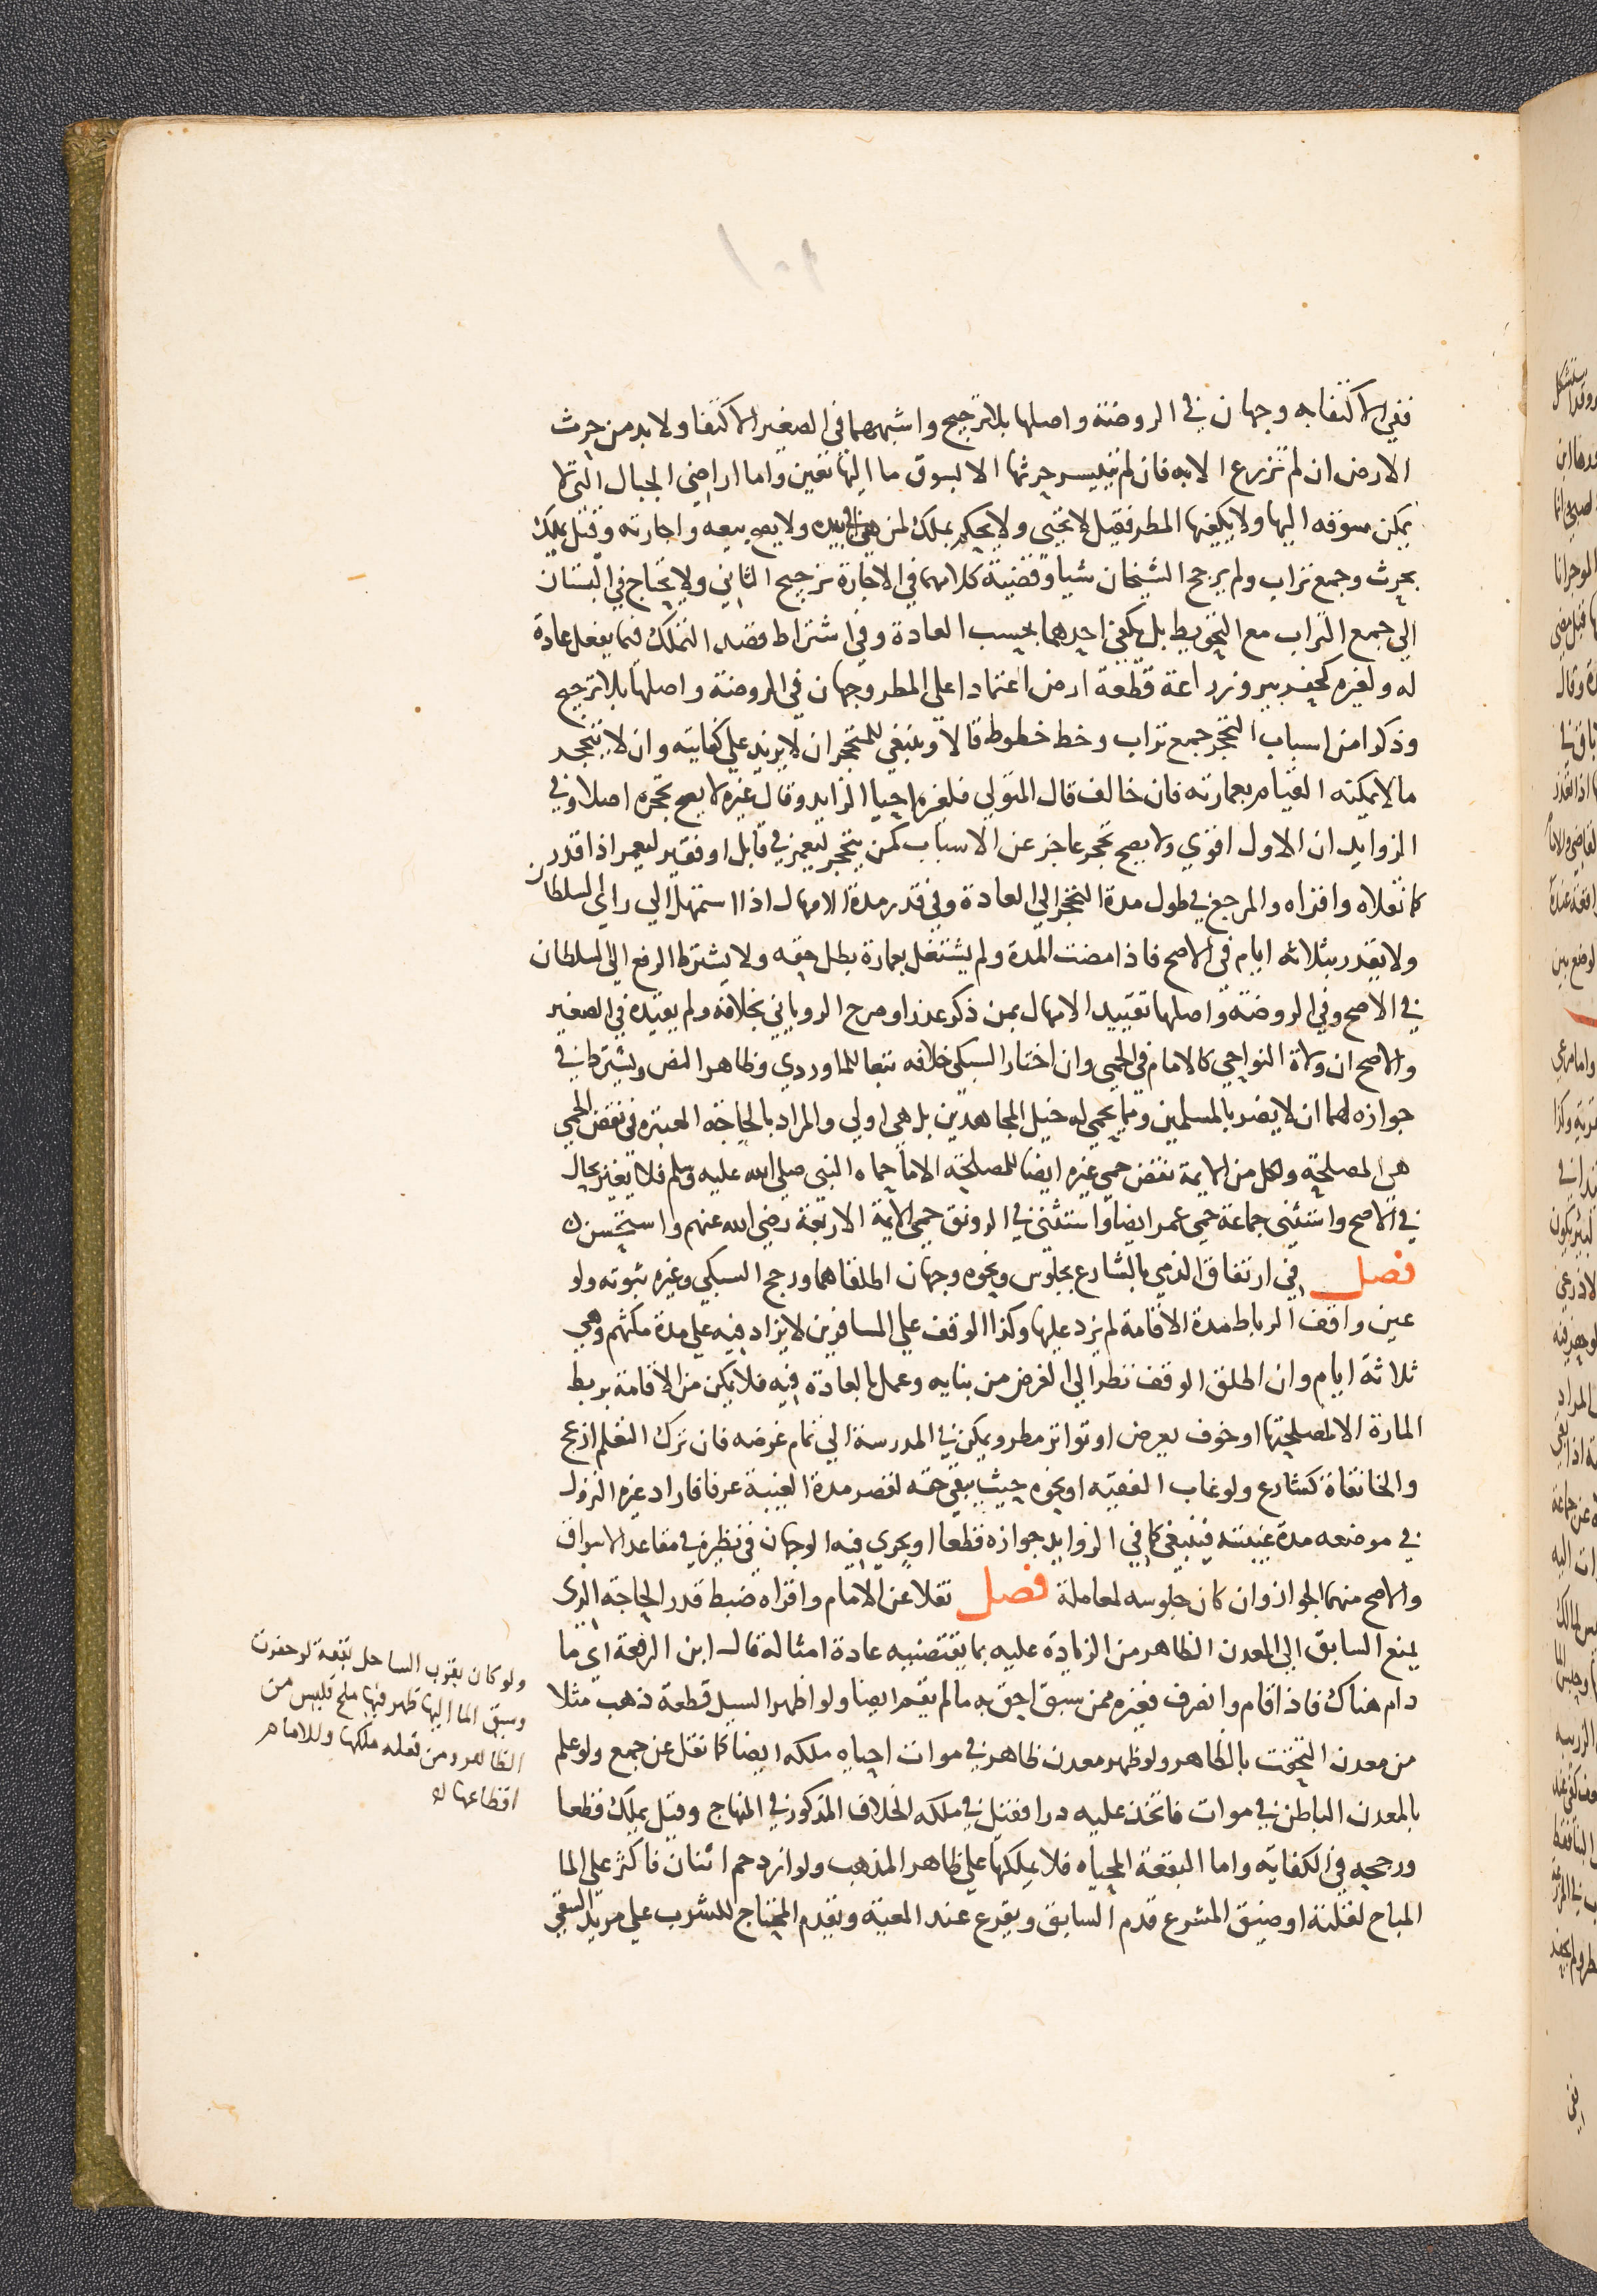 ففي الاكتفا به وجهان في الروضة واصلها بلا ترجيح واشبههما في الصغير الاكتفا ولا بد من حرث
الارض ان لم تزرع الا به فان لم يتيسر حرثها الا بسوق ما اليها تعين واما اراضي الجبال التي لا
يمكن سوقه اليها ولا يكفيها المطر فقيل لا تحيى ولا يحكم بملك لمن هي في يده ولا يصح بيعه واجارته وقيل يملك
بحرث وجمع تراب ولم يرجح الشيخان شيا وقضية كلامهما في الاجارة ترجيح الثاني ولا يحتاج في البستان
الي جمع التراب مع التحويط بل يكفي احدهما بحسب العادة وفي اشتراط قصد التملك فيما يفعل عادة
له ولغيره كحفر بير وزراعة قطعة ارض اعتمادا علي المطر وجهان في الروضة واصلها بلا ترجيح
وذكرا من اسباب التحجر جمع تراب وخط خطوط قالا وينبغي للمتحجر ان لا يزيد علي كفايته وان لا يتحجر
ما لا يمكنه القيام بعمارته فان خالف قال المتولي فلغيره احيا الزايد وقال غيره لا يصح تحجره اصلا وفي
الزوايد ان الاول اقوي ولا يصح تحجر عاجز عن الاسباب كمن يتحجر ليعمر في قابل او فقير ليعمر اذا قدر
كما نقلاه واقراه والمرجع في طول مدة التحجر الي العادة وفي قدر مدة الامهال اذا استمهل الي راي السلطان
ولا يقدر بثلاثه ايام في الاصح فاذا مضت المدة ولم يشتغل بعمارة بطل حقه ولا يشترط الرفع الي السلطان
في الاصح وفي الروضة واصلها تقييد الامهال بمن ذكر عذرا وصرح الروياني بخلافه ولم يقيده في الصغير
والاصح ان ولاة النواحي كالامام في الحمي وان اختار السبكي خلافه تبعا للماوردي وظاهر النص ويشترط في
جوازه لهما ان لا يضر بالمسلمين ومما يحمي له خيل المجاهدين بل هي اولي والمراد بالحاجة المعتبره في نقض الحمي
هي المصلحة ولكل من الايمة نقض حمي غيره ايضا للمصلحة الا ما حماه النبي صلي الله عليه وسلم فلا يغير بحال
في الاصح واستثني جماعة حمي عمر ايضا واستثني في الرونق حمي الايمة الاربعة رضي الله عنهم واستحسن ك
فصل في ارتفاق الذمي بالشارع بجلوس ونحوه وجهان اطلقاهما ورجح السبكي وغيره ثبوته ولو
عين واقف الرباط مدة الاقامة لم يزد عليها وكذا الوقف علي المسافرين لا يزاد فيه علي مدة مكثهم وهي
ثلاثة ايام وان اطلق الوقف نظر الي الغرض من بنايه وعمل بالعادة فيه فلا يمكن من الاقامة بربط
المارة الا لمصلحتها او خوف يعرض او تواتر مطر ويمكن في المدرسة الي تمام غرضه فان ترك التعلم ازعج
والخانقاة كشارع ولو غاب الفقيه او نحوه حيث يبقي حقه لقصر مدة الغيبة عرفا فاراد غيره النزول
في موضعه مدة غيبته فينبغي كما في الزوايد جوازه قطعا او يجري فيه الوجهان في نظيره في مقاعد الاسواق
والاصح منهما الجواز وان كان جلوسه لمعاملة فصل نقلا عن الامام واقراه ضبط قدر الحاجة الذي
يمنع السابق الي المعدن الظاهر من الزيادة عليه بما يقتضيه عادة امثاله قال ابن الرفعة اي ما
دام هناك فاذا قام وانصرف فغيره ممن سبق احق به ما لم يقم ايضا ولو اظهر السيل قطعة ذهب مثلا
من معدن التحقت بالظاهر ولو ظهر معدن ظاهر في موات احياه ملكه ايضا كما نقل عن جمع ولو علم
بالمعدن الباطن في موات فاتخذ عليه درا ففي ملكه الخلاف المذكور في المنهاج وقيل يملك قطعا
ورجحه في الكفاية واما البقعة المحياه فلا يملكها علي ظاهر المذهب ولو ازدحم اثنان فاكثر علي الما
المباح لقلته او ضيق المشرع قدم السابق ويقرع عند المعية وتقدم المحتاج للشرب علي مريد السقي
ولو كان بقرب الساحل بقعة لو حفرت
وسيق الما اليها ظهر فيها ملح فليس من
الظاهر ومن فعله ملكها وللامام
اقطاعها له